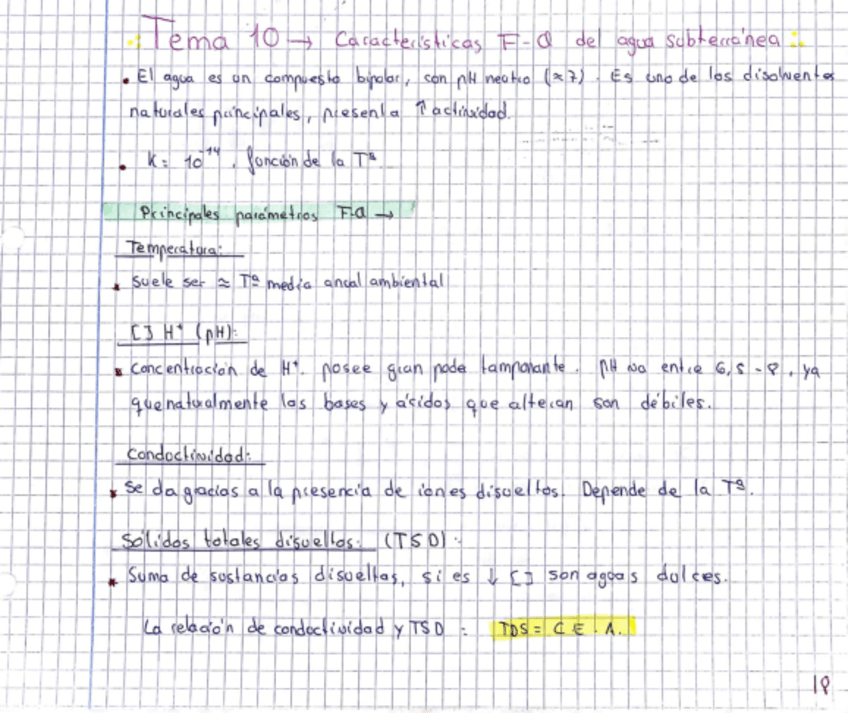 Tema 10 → Características F-Q del agua subterránea
• El agua es un compuesto bipolar, con pH neutro (≈7). Es uno de los disolventes
naturales principales, presenta ↑ actividad.
• K = 10⁻¹⁴, función de la Tª
Principales parámetros F-Q →
Temperatura:
• Suele ser ≈ Tª media anual ambiental
[] H⁺ (pH):
• Concentración de H⁺. posee gran pode tamponante. pH va entre 6,5 - 8, ya
que naturalmente las bases y ácidos que alteran son débiles.
Conductividad:
• Se da gracias a la presencia de iones disueltos. Depende de la Tª.
Sólidos totales disueltos: (TSD):
• Suma de sustancias disueltas, si es ↓ [] son aguas dulces.
La relación de conductividad y TSD: TDS = C E . A.
18